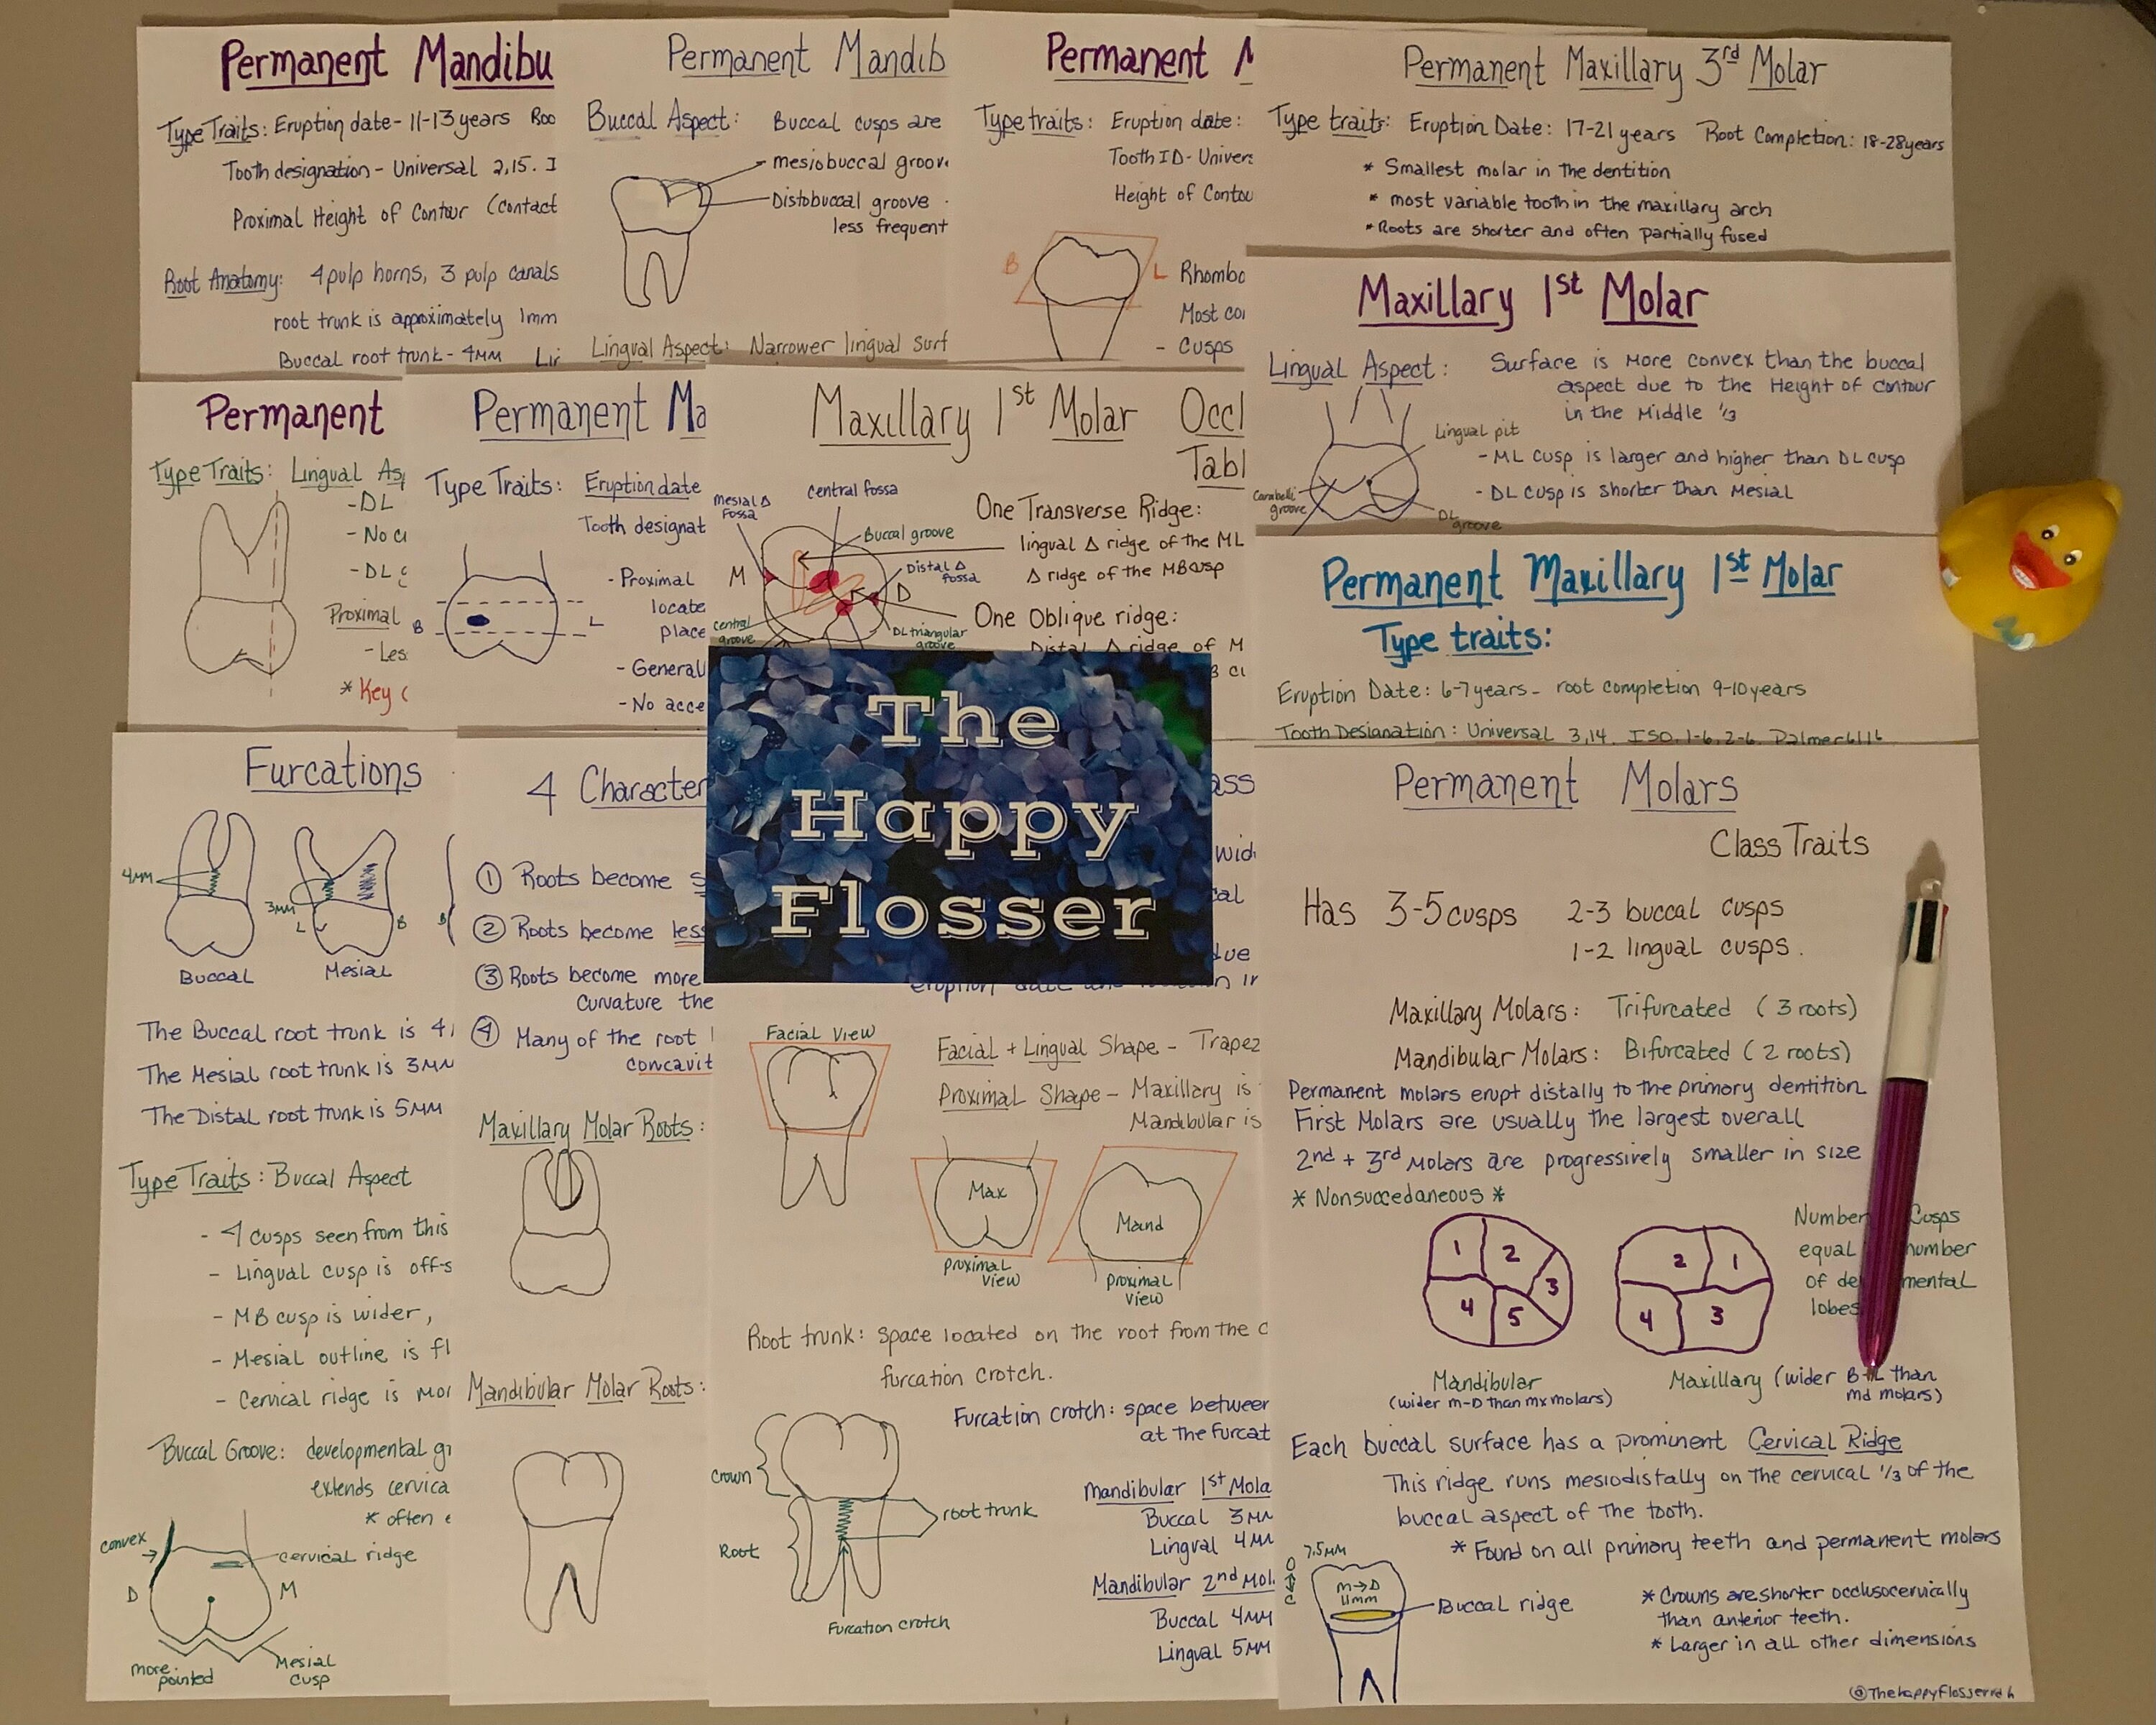 Permanent Mandibu
Type Traits: Eruption date- 11-13 years Roo
Tooth designation - Universal 2,15. I
Proximal Height of Contour (contact
Root Anatomy: 4 pulp horns, 3 pulp canals
root trunk is approximately 1mm
Buccal root trunk - 4MM Lir
Permanent Mandib
Buccal Aspect: Buccal cusps are
mesiobuccal groov
Distobuccal groove
less frequent
Lingual Aspect: Narrower lingual surf
Permanent M
Type traits: Eruption date:
Tooth ID- Univers
Height of Contou
B
L Rhombo
Most co
- Cusps
Permanent Maxillary 3rd Molar
Type traits: Eruption Date: 17-21 years Root Completion: 18-28years
* Smallest molar in the dentition
* most variable tooth in the maxillary arch
* Roots are shorter and often partially fused
Maxillary 1st Molar
Lingual Aspect: Surface is more convex than the buccal
aspect due to the Height of contour
in the middle 1/3
Lingual pit
- ML cusp is larger and higher than DL cusp
- DL cusp is shorter than Mesial
Carabelli
groove
DL
groove
Permanent Maxillary 1st Molar
Type traits:
Eruption Date: 6-7years - root completion 9-10years
Tooth Designation: Universal 3,14. ISO. 1-6, 2-6. Palmer 6 6
Permanent
Type Traits: Lingual As
- DL
- No c
- DL c
Proximal
- Les
* Key c
Permanent Ma
Type Traits: Eruption date
Tooth designat
B
L
- Proximal
locate
place
- General
- No acce
Maxillary 1st Molar Occl
Tabl
Mesial Δ
Fossa
Central fossa
Buccal groove
M
Distal Δ
fossa
D
central
groove
DL triangular
groove
One Transverse Ridge:
lingual Δ ridge of the ML
Δ ridge of the MB cusp
One Oblique ridge:
Distal Δ ridge of M
The
Happy
Flosser
Furcations
4MM
3MM
L
B
B
Buccal
Mesial
The Buccal root trunk is 4
The Mesial root trunk is 3MM
The Distal root trunk is 5MM
Type Traits: Buccal Aspect
- 4 cusps seen from this
- Lingual cusp is off-s
- MB cusp is wider,
- Mesial outline is fl
- Cervical ridge is mor
Buccal Groove: developmental gr
extends cervica
* often
convex
cervical ridge
D
M
more
pointed
Mesial
cusp
4 Character
① Roots become s
② Roots become less
③ Roots become more
curvature the
④ Many of the root
concavit
Maxillary Molar Roots:
Mandibular Molar Roots:
ass
wid
cal
due
eruption date and
n ir
Facial View
Facial + Lingual Shape - Trapez
Proximal Shape - Maxillary is
Mandibular is
Max
proximal
view
Mand
proximal
view
Root trunk: space located on the root from the c
furcation crotch.
Furcation crotch: space between
at the furcat
crown
Root
root trunk
Furcation crotch
Mandibular 1st Mola
Buccal 3MM
Lingual 4MM
Mandibular 2nd Mol
Buccal 4MM
Lingual 5MM
Permanent Molars
Class Traits
Has 3-5 cusps
2-3 buccal cusps
1-2 lingual cusps.
Maxillary Molars: Trifurcated (3 roots)
Mandibular Molars: Bifurcated (2 roots)
Permanent molars erupt distally to the primary dentition
First Molars are usually the largest overall
2nd + 3rd Molars are progressively smaller in size
* Nonsuccedaneous *
1 2 3 4 5
2 1 4 3
Number Cusps
equal number
of de mental
lobes
Mandibular
(wider m-D than mx molars)
Maxillary (wider B-L than
md molars)
Each buccal surface has a prominent Cervical Ridge
This ridge runs mesiodistally on the cervical 1/3 of the
buccal aspect of the tooth.
* Found on all primary teeth and permanent molars
7.5MM
O
C
M→D
11mm
Buccal ridge
* Crowns are shorter occlusocervically
than anterior teeth.
* Larger in all other dimensions
@Thehappyflosserrdh